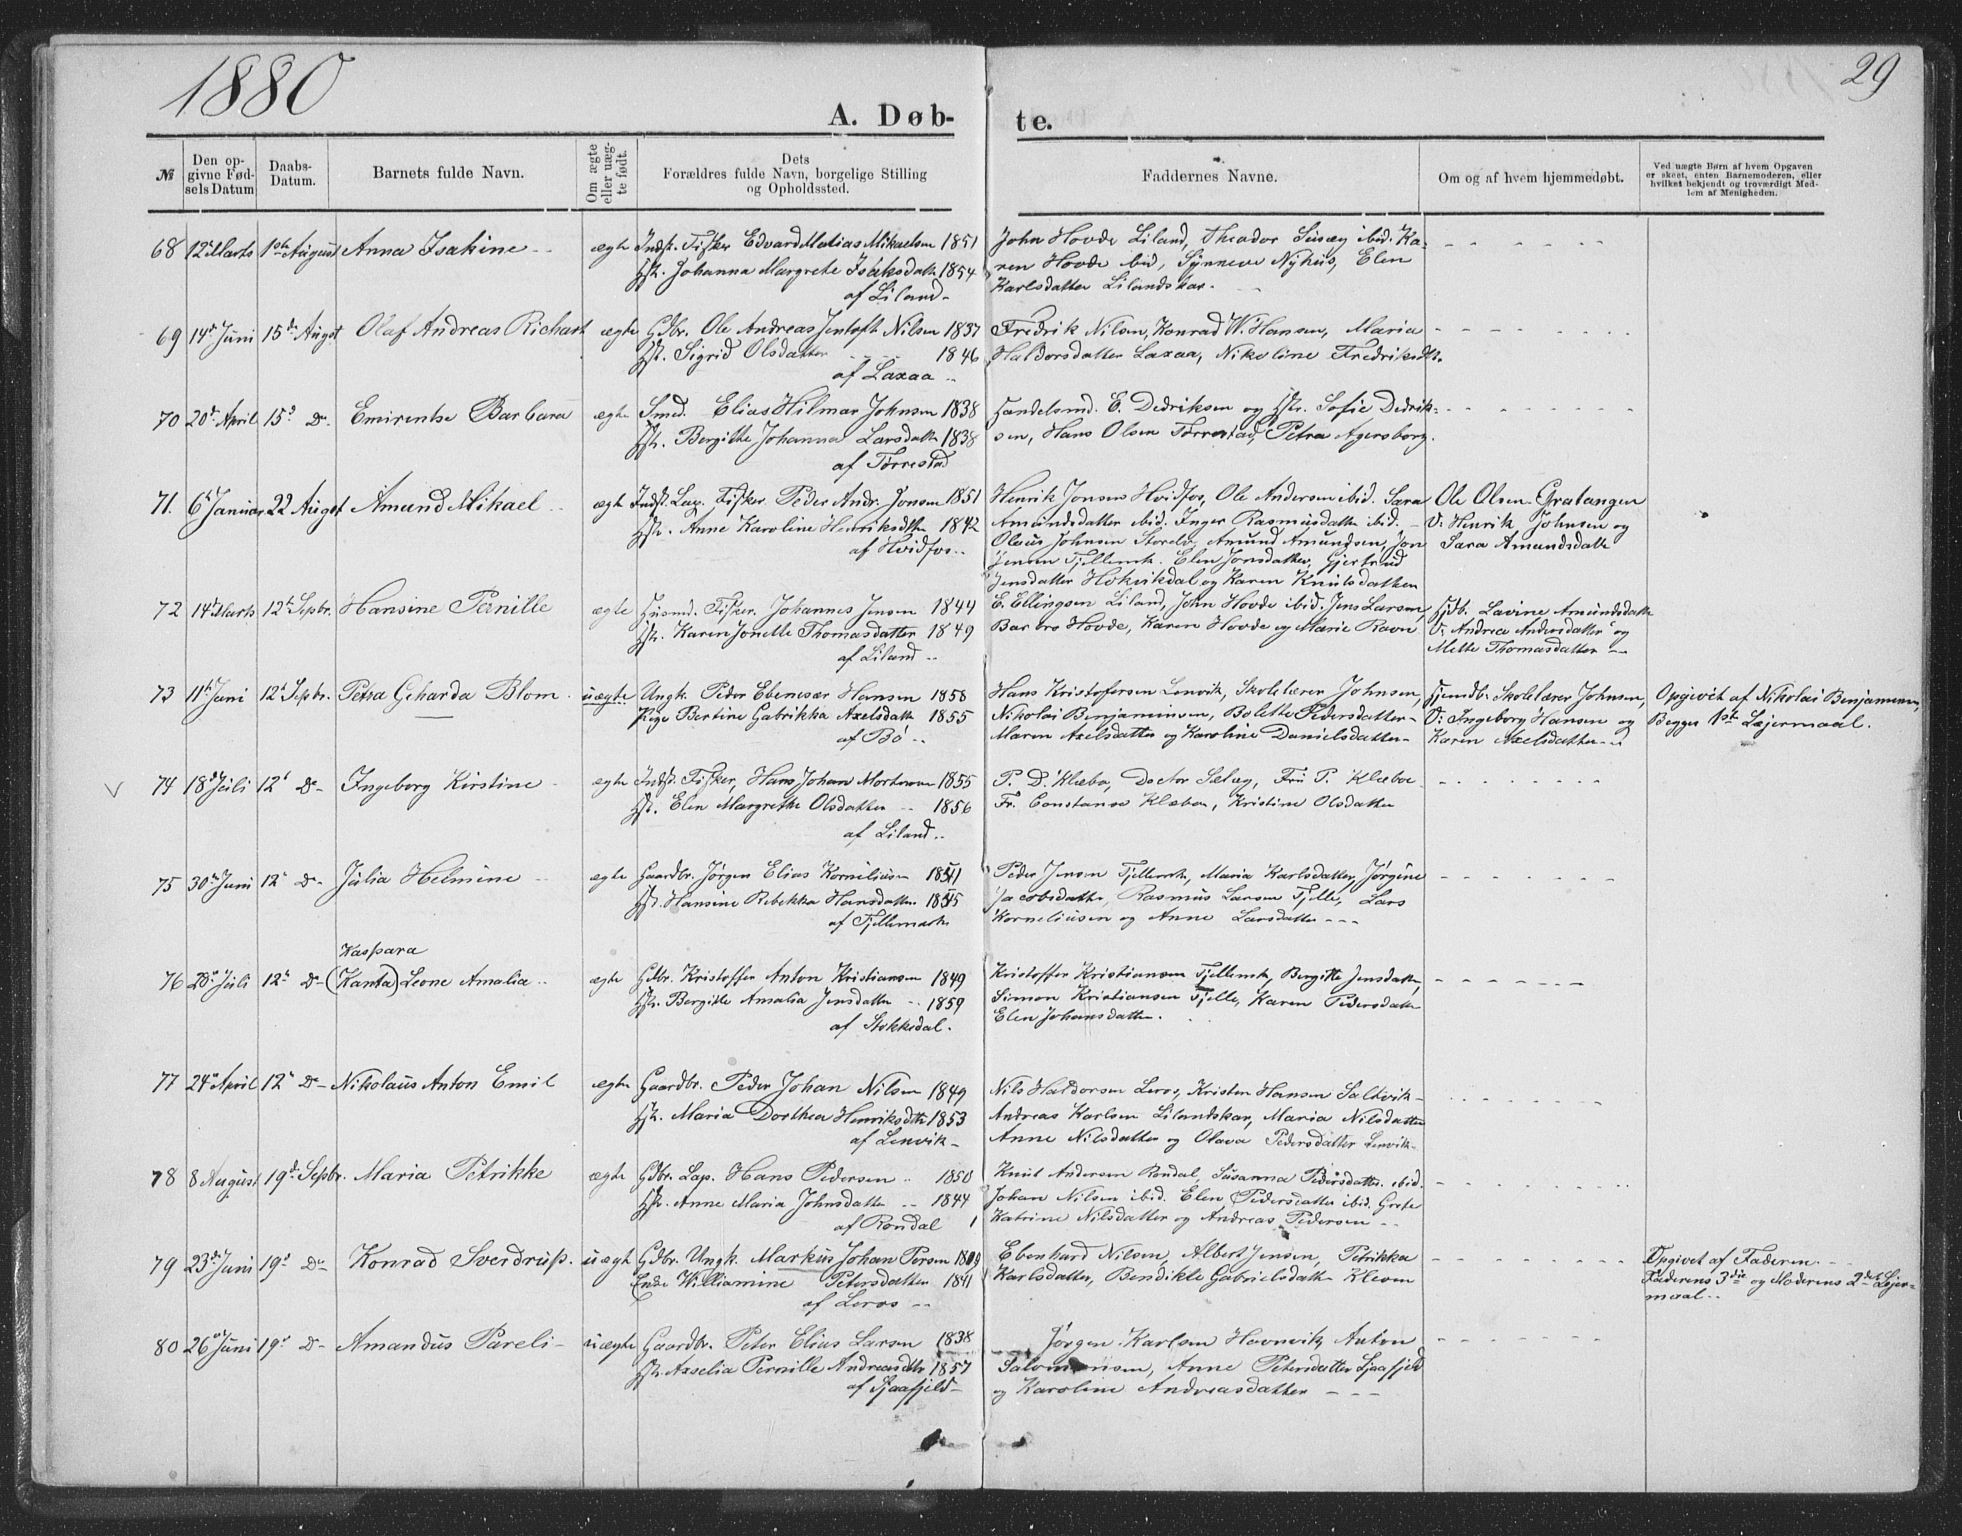 1880
29
A. Døb- te.
№
Den opgivne Fødselsdatum
Daabs-Datum.
Barnets fulde Navn.
Om ægte eller uægte født.
Dets Forældres fulde Navn, borgelige Stilling og Opholdssted.
Faddernes Navne.
Om og af hvem hjemmedøbt.
Ved uægte Børn af hvem Opgaven er skeet, enten Barnemoderen, eller hvilket bekjendt og troværdigt Medlem af Menigheden.
68 12te Marts 1ste August Anna Isakine ægte Indst. Fisker Edvard Matias Mikaelsen 1851 John Hovde Liland, Theodor ibid. Ka-
Hst. Johanna Margrete Isaksdatt. 1854 ren Hovde ibid, Synneve Nyhus, Elen
af Liland Karlsdatter Lilandskar.
69 14de Juni 15de Augst Olaf Andreas Richart ægte Gdbr. Ole Andreas Jentoft Nilsen 1837 Fredrik Nilsen, Konrad W. Hansen, Maria
Hst. Sigrid Olsdatter 1846 Haldorsdatter Laxaa, Nikoline Fredriksdtr.
af Laxaa
70 20de April 15de Do Emirentse Barbara ægte Smed. Elias Hilmar Johnsen 1838 Handelsmd. E. Dedriksen og Hst. Sofie Dedrik-
Hst. Bergitte Johanna Larsdattr 1838 sen, Hans Olsen Tørrestad, Petra Agersborg.
af Tørrestad
71. 6te Januar 22 Augst Amund Mikael ægte Indst. Lap. Fisker. Peder Andr. Jonsen 1851 Henrik Jonsen Hvidfos, Ole Andersen ibid. Sara Ole Olsen Gratangen
Hst. Anne Karoline Henriksdttr 1842 Amundsdatter ibid. Inger Rasmusdatter ibid. V: Henrik Johnsen og
af Hvidfos Oleus Johnsen Storelv, Amund Amundsen, Jon Sara Amundsdatt
Jensen Fjellemrk. Elen Jonsdatter, Gjertrud
Jensdatter Hokvikdal og Karen Knutsdatter
72 14de Marts 12te Sepbr. Hansine Pernille ægte Husmd. Fisker. Johannes Jensen 1844 E. Ellingsen Liland, John Hovde ibid. Jens Larsen, Hjdb. Lavine Amundsdattr
Hst. Karen Jonette Thomasdatter 1849 Barbro Hovde, Karen Hovde og Marie Ravn V: Andrea Andersdatter og
af Liland Mette Thomasdatter
73 11te Juni 12te Sepbr. Petra Geharda Blom uægte Ungk. Peder Ebenesær Hansen 1858 Hans Kristofersen Lenvik, Skolelærer Johnsen, Hjemdb. Skolelærer Johnsen, Opgivet af Nikolai Benjaminsen,
Pige Bertine Gabrikka Axelsdatt 1855 Nikolai Benjaminsen, Bolette Pedersdatter V: Ingeborg Hansen og Begges 1ste Lejermaal.
af Bø Maren Axelsdatter og Karoline Danielsdatter Karen Axelsdatter
74 18de Juli 12te Do Ingeborg Kirstine ægte Indst. Fisker, Hans Johan Mortensen 1855 P. D. Klæbo, Doctor Selæg, Fru P. Klæboe
Hst. Elen Margrethe Olsdatter 1856 Fr. Constanse Klæboe, Kristine Olsdatter
af Liland
75 30te Juni 12te Do Julia Helmine ægte Gaardbr. Jørgen Elias Kornelius­en Peder Jensen Fjellemrk, Maria Karlsdatter, Jørgine
Hst. Hansine Rebekka Hansdatter Jacobsdatter, Rasmus Larsen Fjelle, Lars
af Fjellemark Korneliusen og Anne Larsdatter
Kaspara
76 28de Juli 12te Do (Kanta) Leone Amalia ægte Gdbr. Kristoffer Anton Kristiansen 1849 Kristoffer Kristiansen Fjellemrk, Bergitte Jensdatter,
Hst. Bergitte Amalia Jensdatter 1859 Simon Kristiansen Fjelle, Karen Pedersdatter
af Stokkedal. Elen Johansdatter.
77 24de April 12te Do Nikolaus Anton Emil ægte Gaardbr. Peder Johan Nilsen 1849 Nils Haldorsen Leros, Kristen Hansen Saltvik
Hst. Maria Dorthea Henriksdtr 1853 Andreas Karlsen Lilandskar, Maria Nilsdatter
af Lenvik Anne Nilsdatter og Olava Pedersdatter Lenvik
78 8 August 19de Sepbr. Maria Petrikke ægte Gdbr. Lap. Hans Pedersen 1850 Knut Andersen Rondal, Susanna Pedersdatter ibid.
Hst. Anne Maria Johnsdatter 1844 Johan Nilsen ibid. Elen Pedersdatter ibid. Grete
af Rondal Katrine Nilsdatter og Andreas Pedersen
79 23de Juni 19de Do Konrad Sverdrup. uægt Gdbr. Ungk. Markus Johan Persen Ebenhard Nilsen, Albert Jensen, Petrikka Opgivet af Faderen.
Enke Williamine Petersdatter 1841 Karlsdatter, Bendikte Gabrielsdatt Kleven Faderens 3die og Moderens 2det Lejer-
af Leros maal
80 26de Juni 19de Do Amandus Pareli uægte Gaardbr. Peter Elias Larsen 1838 Jørgen Karlsen Hovnvik, Anton
Hst. Asselia Pernille Andreasdtr 1857 Salomonsen, Anne Petersdatter Sjaafjeld
af Sjaafjeld og Karoline Andreasdatter